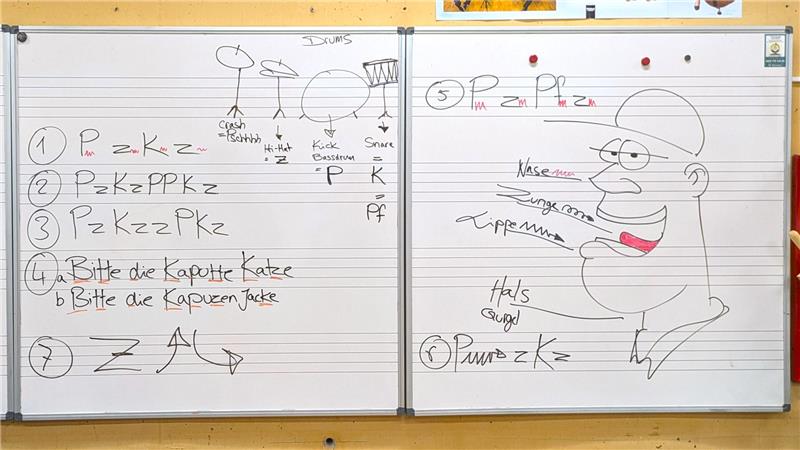 Drums
Crash
= Pschhhh
Hi-Hat
= Z
Kick
Bassdrum
= P
Snare
=
K
=
Pf
1 P z K z
2 PzKzPPKz
3 PzKzzPKz
4 a Bitte die Kaputte Katze
b Bitte die Kapuzen Jacke
7 Z
5 P z Pf z
Nase
Zunge
Lippe
Hals
Gurgel
6 P z K z